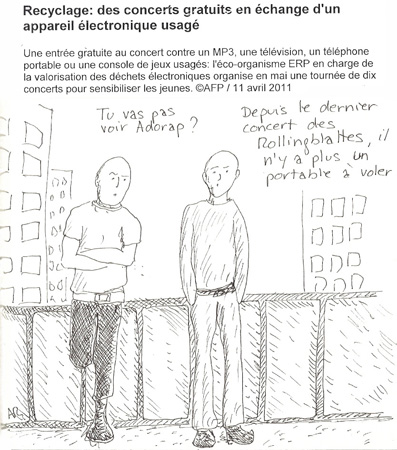 Recyclage: des concerts gratuits en échange d'un
appareil électronique usagé
Une entrée gratuite au concert contre un MP3, une télévision, un téléphone
portable ou une console de jeux usagés: l'éco-organisme ERP en charge de
la valorisation des déchets électroniques organise en mai une tournée de dix
concerts pour sensibiliser les jeunes. ©AFP / 11 avril 2011
Tu vas pas
voir Adorap ?
Depuis le dernier
concert des
Rollingblattes, il
n'y a plus un
portable à voler
AR